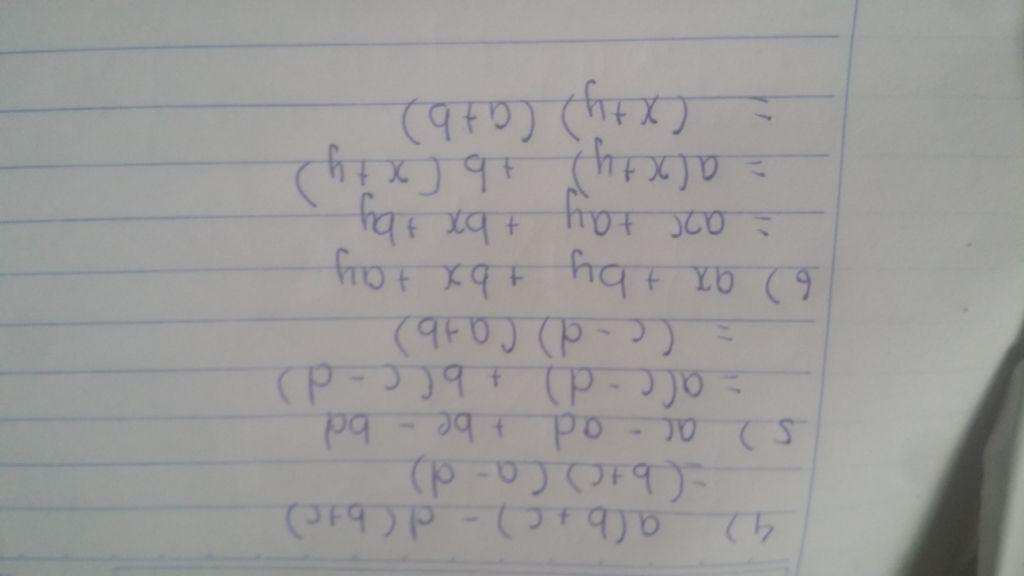 4) a(b+c) - d(b+c)
=(b+c) (a-d)
5) ac - ad + bc - bd
= a(c-d) + b(c-d)
= (c-d) (a+b)
6) ax + by + bx + ay
= ax + ay + bx + by
= a(x+y) + b(x+y)
= (x+y) (a+b)